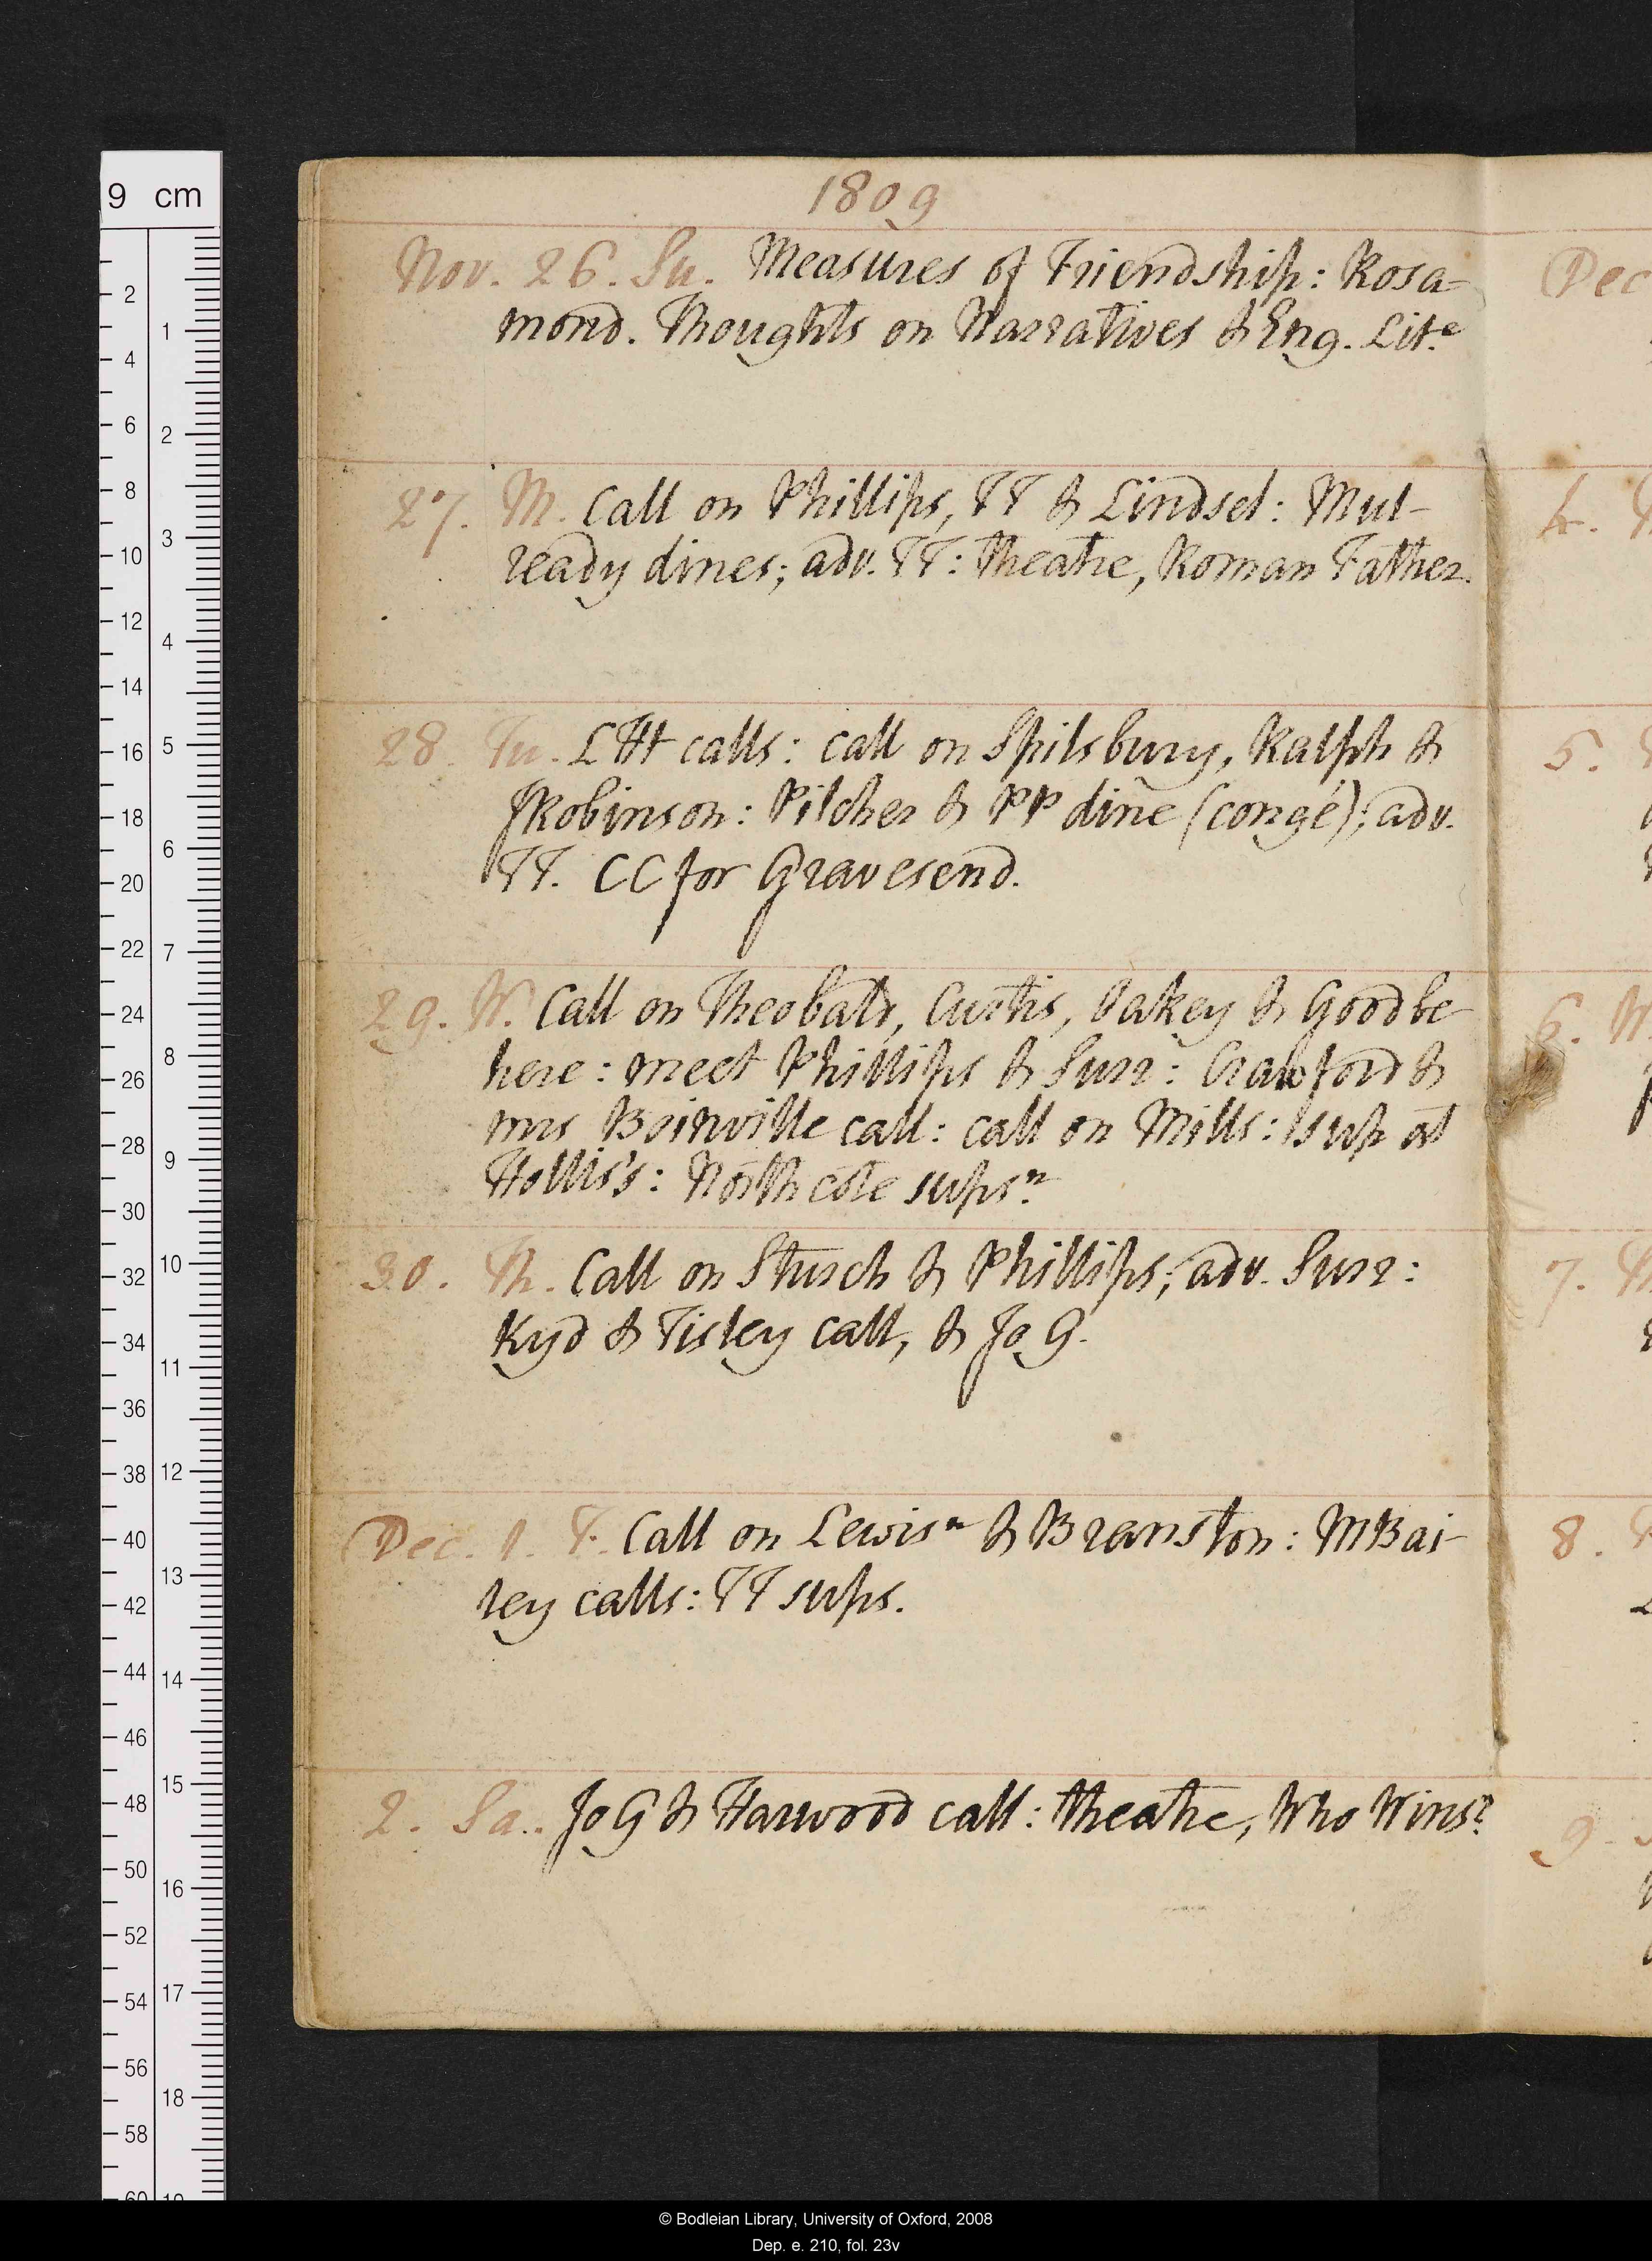 1809
Nov. 26. Su. Measures of Friendship: Rosa=
mond. Thoughts on Narratives & Eng. Lit.e
27. M. Call on Phillips, TT & Lindsel: Mul-
ready dines; adv. TT: theatre, Roman Father.
28. Tu. LHt calls: call on Spilsbury, Ralph &
JRobinson: Pilcher & PP dine (congé); adv.
TT. CC for Gravesend.
29. W. Call on Theobald, Curtis, Oakey & Goodbe-
here: meet Phillips & Surr: Crawford &
mrs Boinville call: call on Mills: sup at
Hollis's: Northcote sups n
30. Th. Call on Sturch & Phillips; adv. Surr:
Kyd & Tisley call, & Jo G.
Dec. 1. F. Call on Lewis n & Branston: MBai-
ley calls: TT sups.
2. Sa. JoG & Harwood call: theatre, Who Wins?
Dec
4.
5.
6. W.
7. Th
8. F
9.
9 cm
2
4
6
8
10
12
14
16
18
20
22
24
26
28
30
32
34
36
38
40
42
44
46
48
50
52
54
56
58
60
1
2
3
4
5
6
7
8
9
10
11
12
13
14
15
16
17
18
19
© Bodleian Library, University of Oxford, 2008
Dep. e. 210, fol. 23v